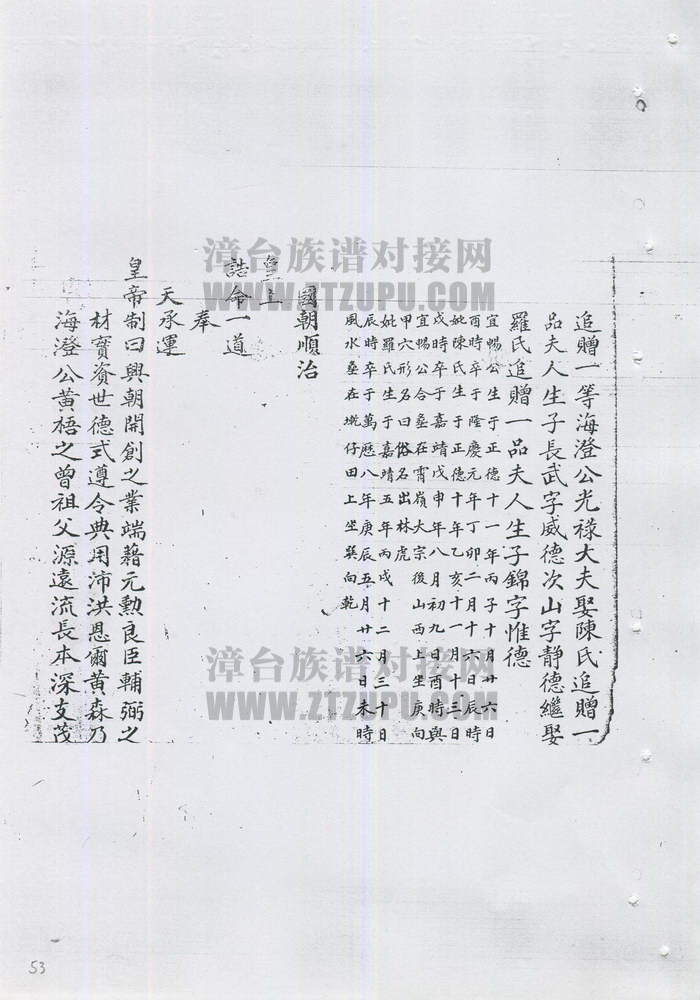 追贈一等海澄公光祿大夫娶陳氏追贈一
品夫人生子長武字威德次山字靜德繼娶
羅氏追贈一品夫人生子錦字惟德
宜暢公生于正德十一年丙子十月廿六日
酉時卒于隆慶元年丁卯二月十六日辰時
妣陳氏生于正德十年乙亥十一月十三日
戌時卒于嘉靖戊申年八月初九日酉時與
宜暢公合塟在霄嶺大宗後山西上坐庚向
甲穴形名曰俗名出林虎
妣羅氏生于嘉靖五年丙戌十二月三十日
辰時卒于萬曆八年庚辰五月廿六日未時
風水塟在墘仔田上坐巽向乾
國朝順治
皇上
誥命一道
奉
天承運
皇帝制曰興朝開創之業端藉元勳良臣輔弼之
材寶資世德式遵令典用沛洪恩爾黃森乃
海澄公黃梧之曾祖父源遠流長本深支茂
漳台族谱对接网
WWW.ZTZUPU.COM
漳台族谱对接网
WWW.ZTZUPU.COM
53